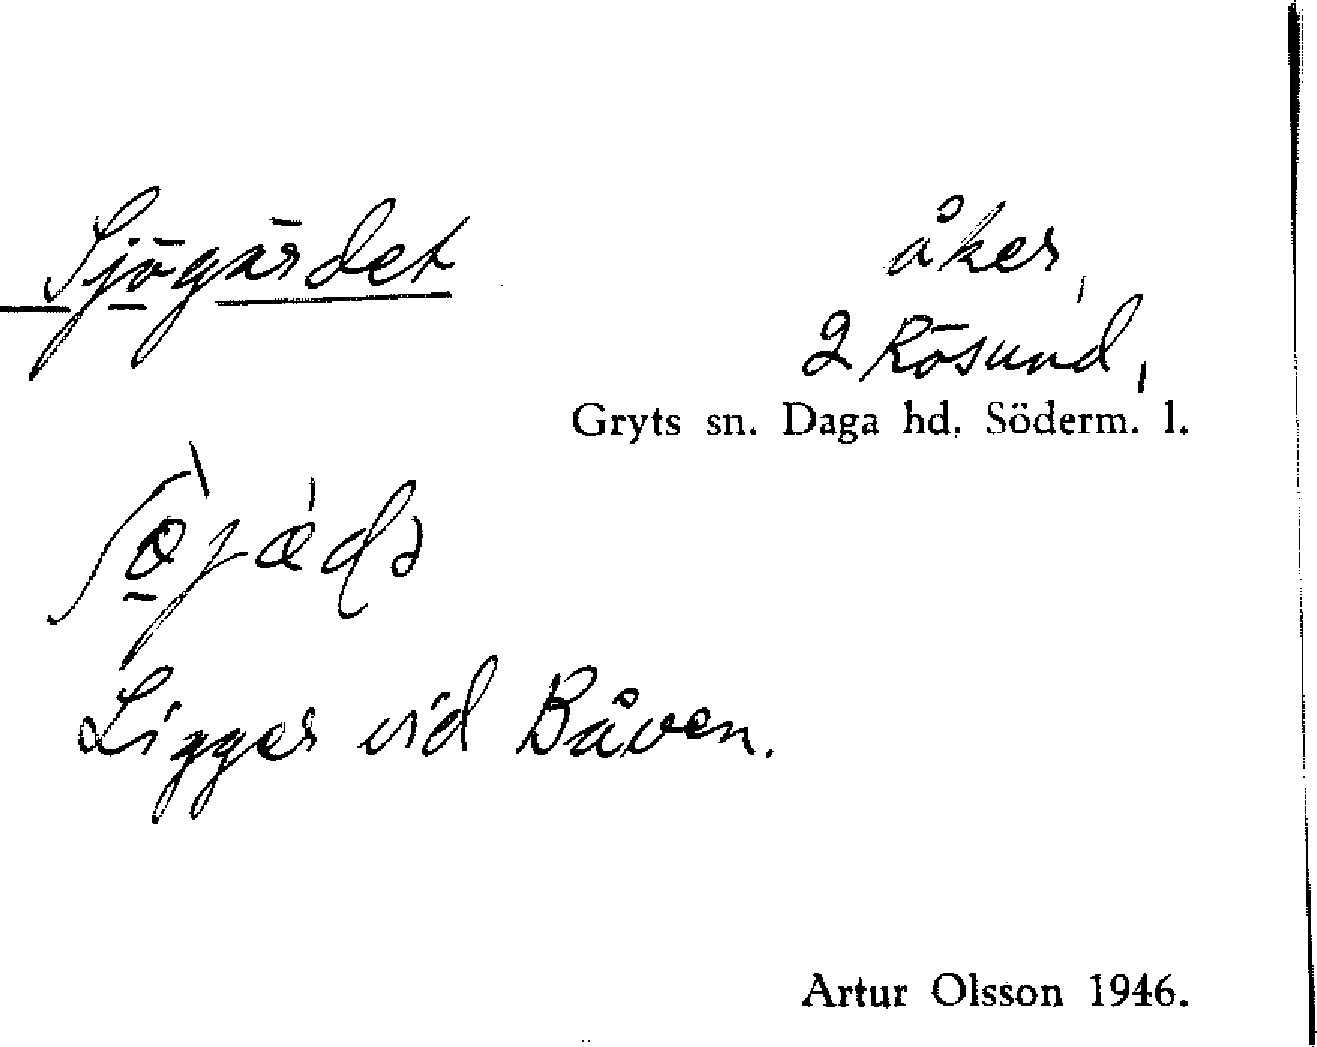 Sjögärdet
åker,
2 Rösund,
Gryts sn. Daga hd. Söderm. l.
Ligger vid Båven.
Artur Olsson 1946.